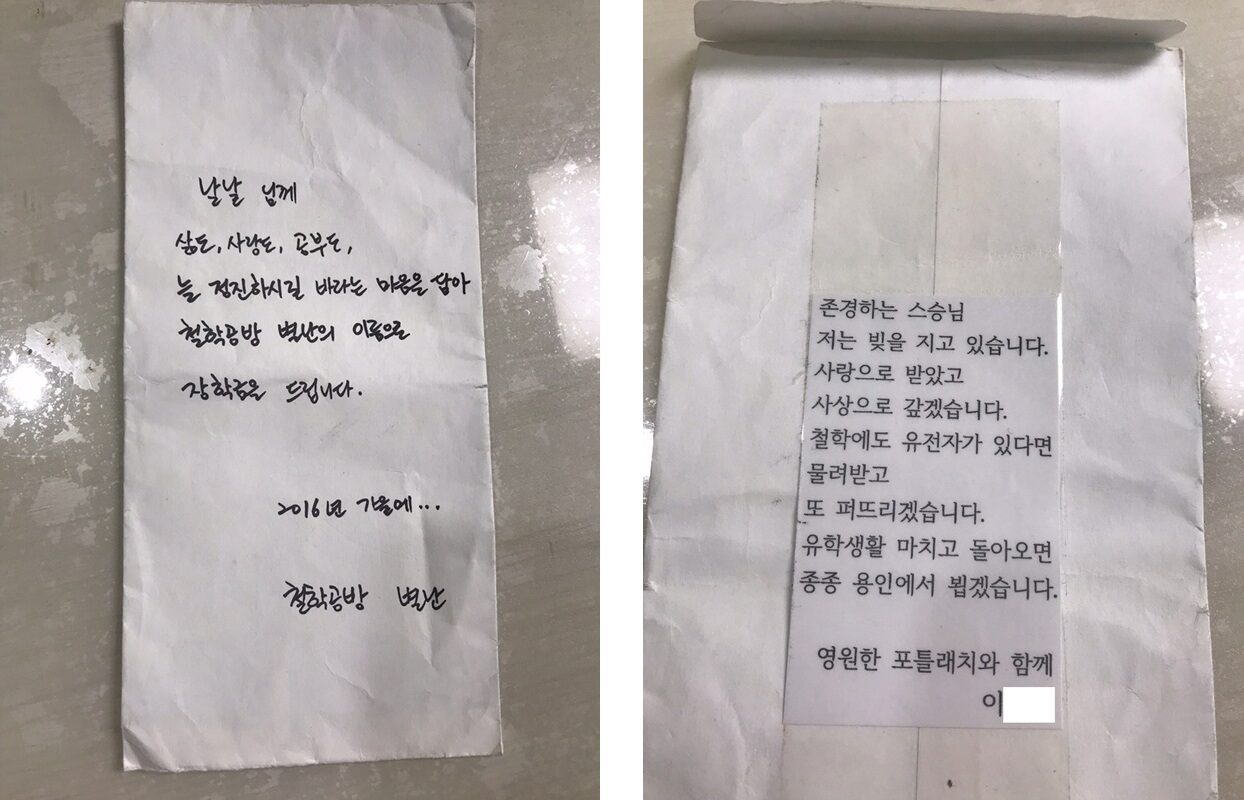 날날 님께
삶도, 사랑도, 공부도,
늘 정진하시길 바라는 마음을 담아
철학공방 별난의 이름으로
장학금을 드립니다.
2016년 가을에...
철학공방 별난
존경하는 스승님
저는 빚을 지고 있습니다.
사랑으로 받았고
사상으로 갚겠습니다.
철학에도 유전자가 있다면
물려받고
또 퍼뜨리겠습니다.
유학생활 마치고 돌아오면
종종 용인에서 뵙겠습니다.
영원한 포틀래치와 함께
이